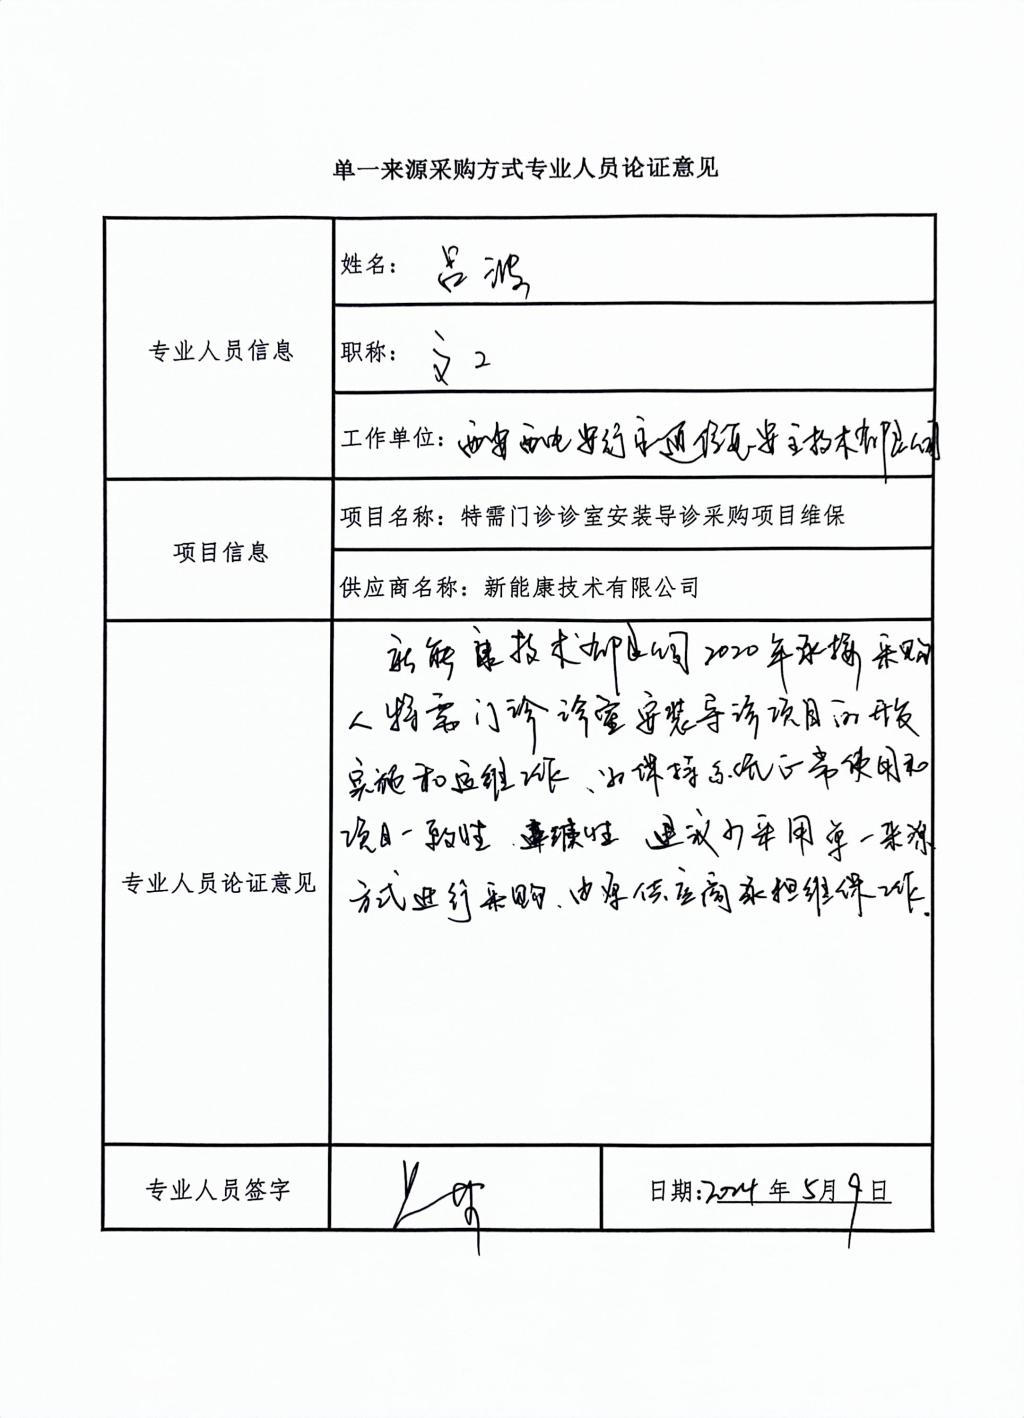 单一来源采购方式专业人员论证意见
专业人员信息
姓名：吕波
职称：高工
工作单位：西安西电安行交通信息安全技术有限公司
项目信息
项目名称：特需门诊诊室安装导诊采购项目维保
供应商名称：新能康技术有限公司
专业人员论证意见
新能康技术有限公司2020年承接采购
人特需门诊诊室安装导诊项目的开发
实施和运维工作、为保持系统正常使用和
项目一致性、连续性 建议采用单一来源
方式进行采购、由原供应商承担维保工作.
专业人员签字
日期:2024年5月9日